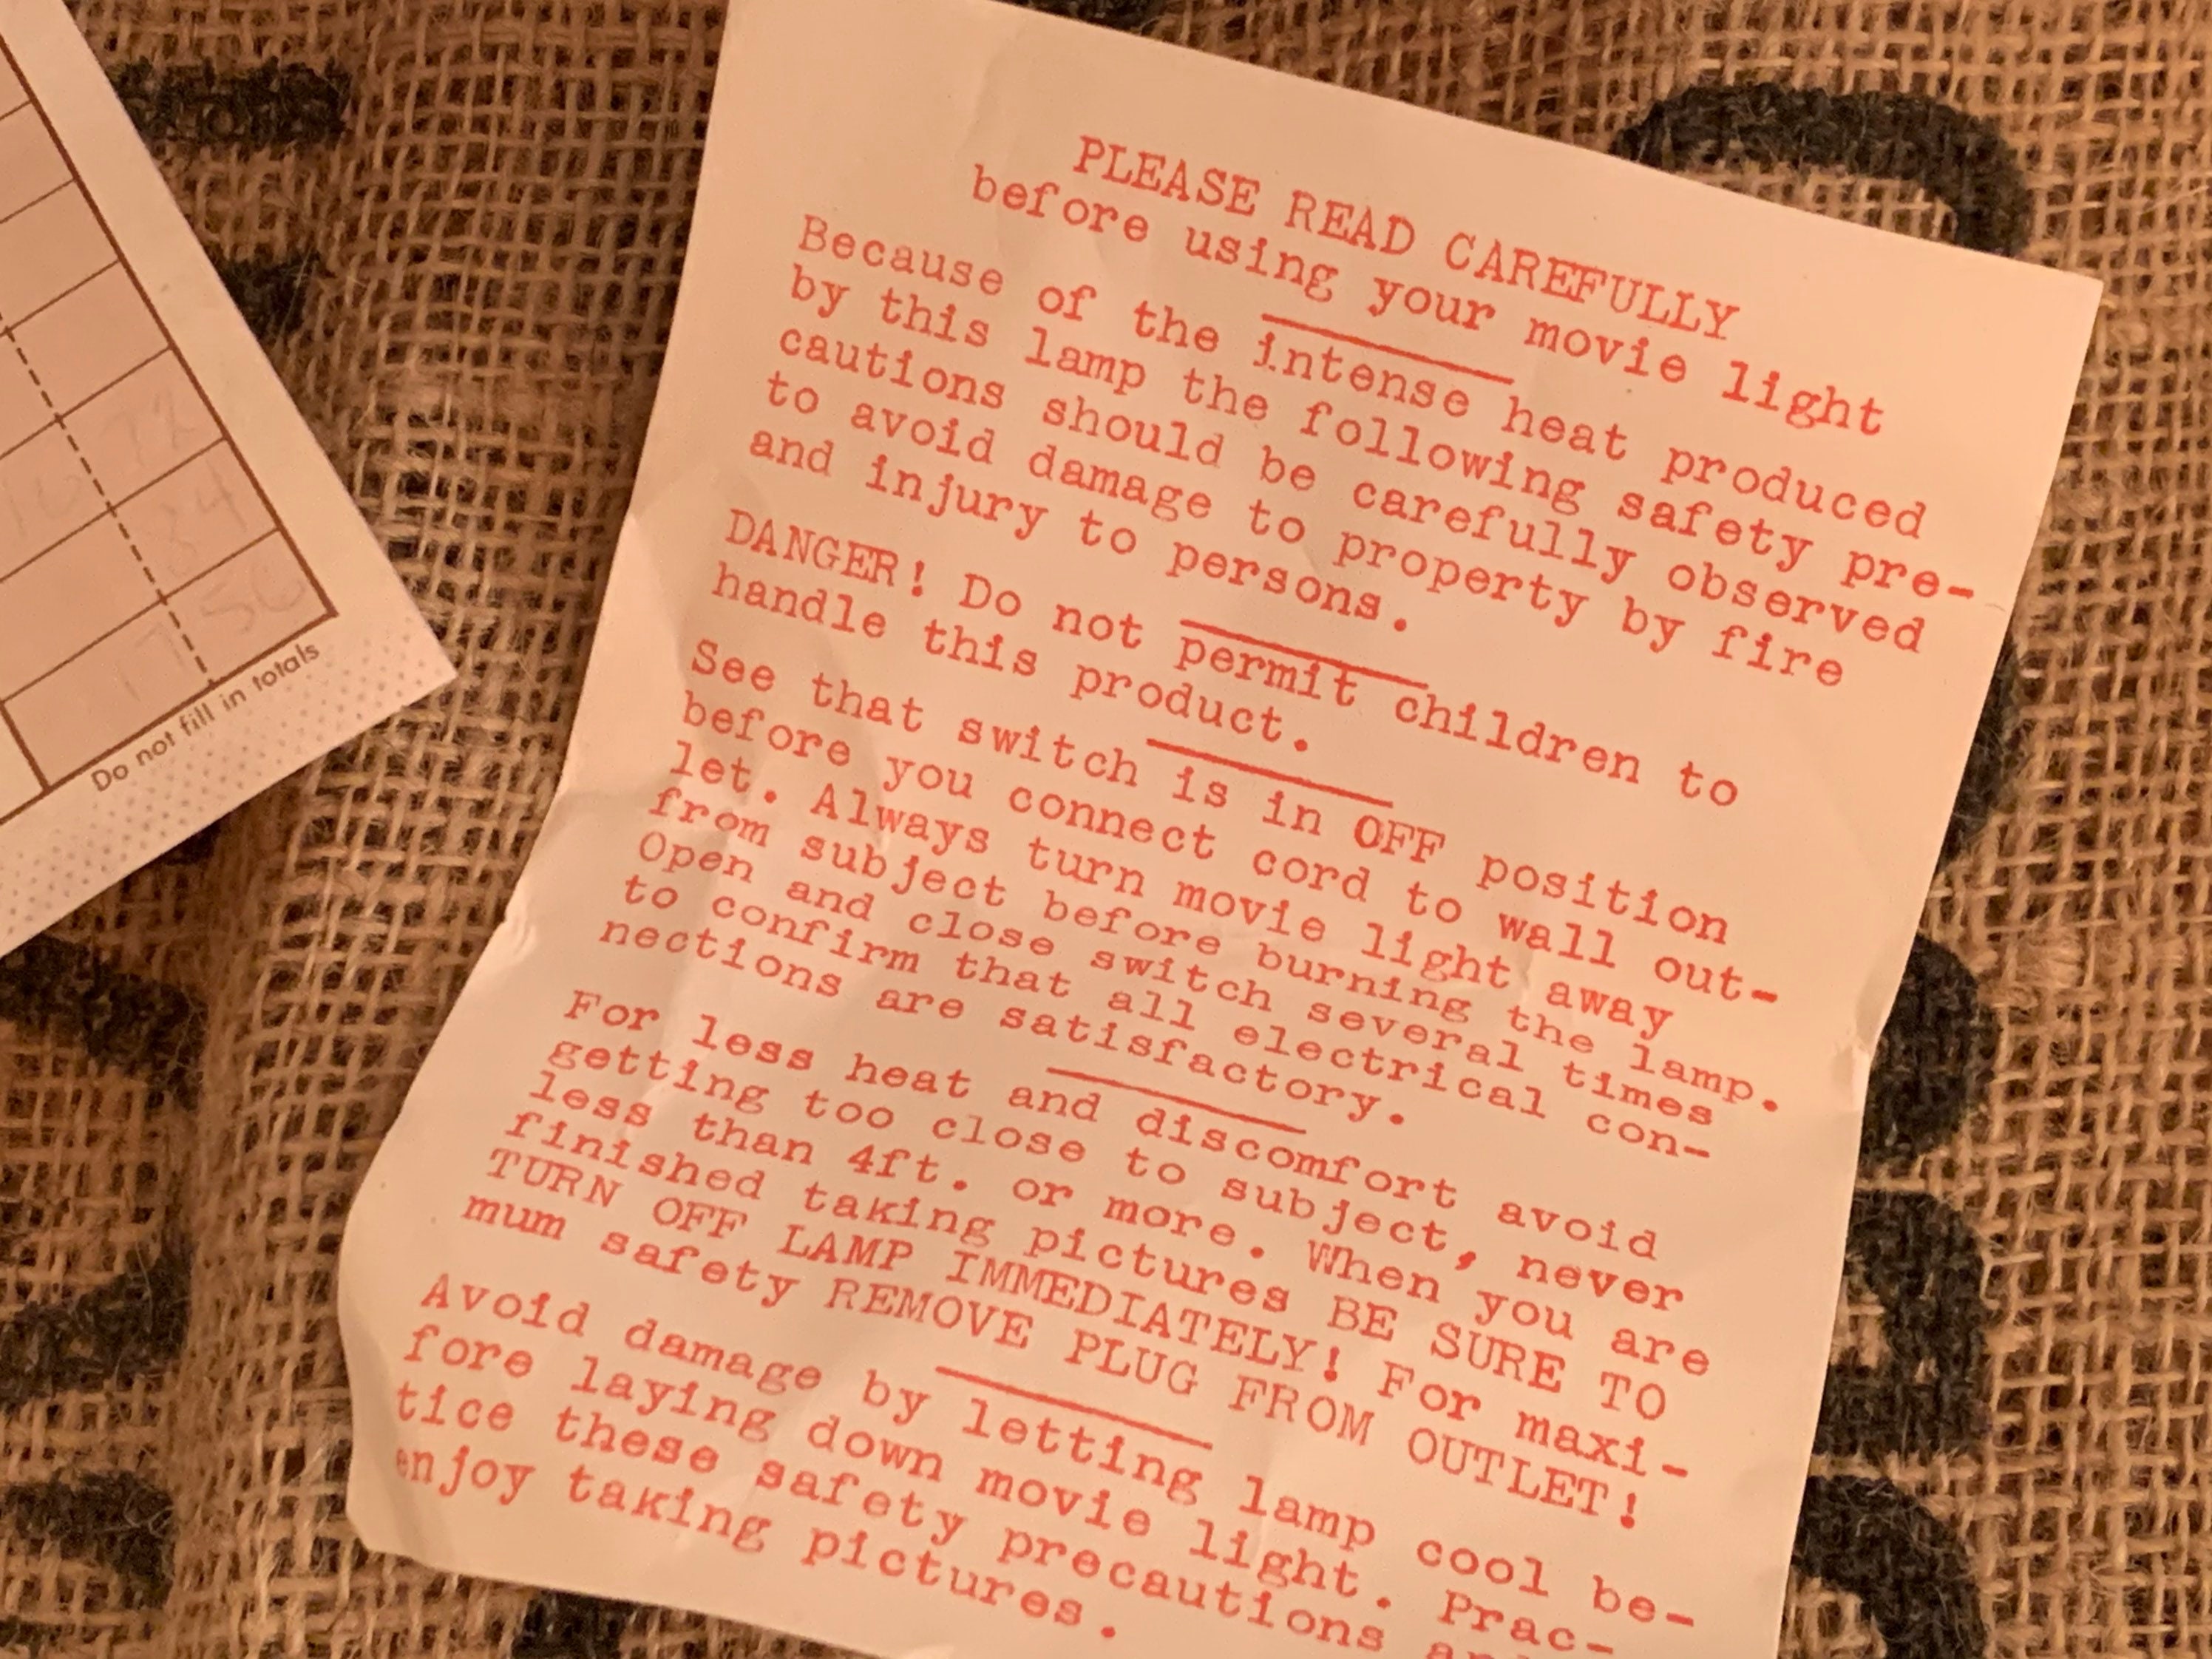 PLEASE READ CAREFULLY
before using your movie light
Because of the intense heat produced
by this lamp the following safety pre-
cautions should be carefully observed
to avoid damage to property by fire
and injury to persons.
DANGER! Do not permit children to
handle this product.
See that switch is in OFF position
before you connect cord to wall out-
let. Always turn movie light away
from subject before burning the lamp.
Open and close switch several times
to confirm that all electrical con-
nections are satisfactory.
For less heat and discomfort avoid
getting too close to subject, never
less than 4ft. or more. When you are
finished taking pictures BE SURE TO
TURN OFF LAMP IMMEDIATELY! For maxi-
mum safety REMOVE PLUG FROM OUTLET!
Avoid damage by letting lamp cool be-
fore laying down movie light. Prac-
tice these safety precautions
enjoy taking pictures.
72
84
7 56
Do not fill in totals